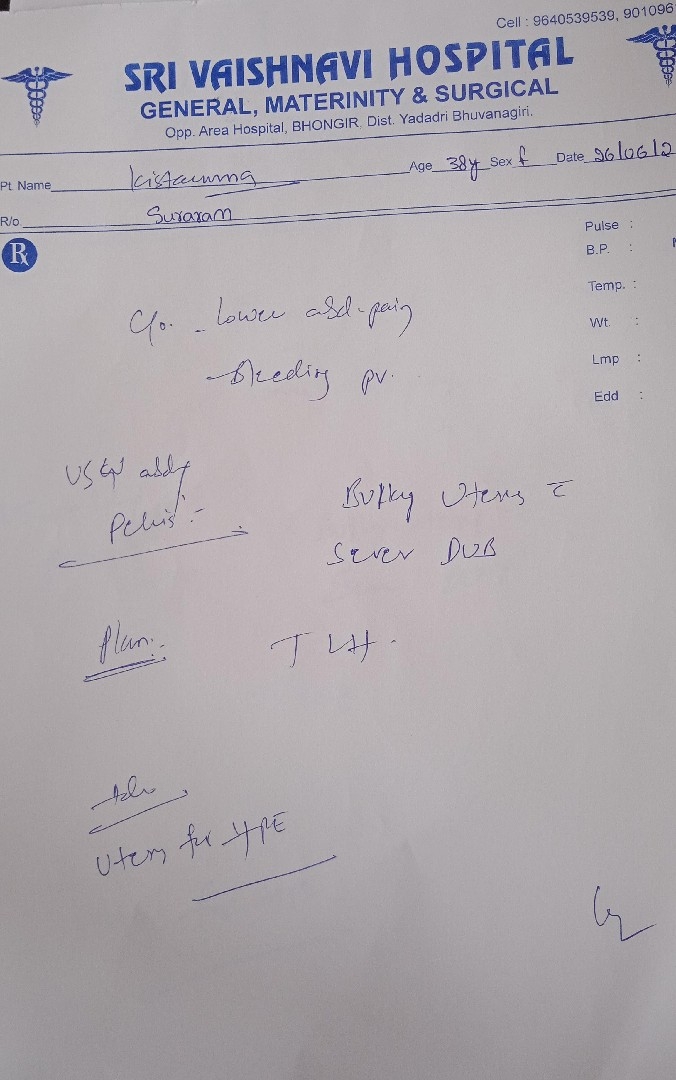 Cell : 9640539539, 901096
SRI VAISHNAVI HOSPITAL
GENERAL, MATERINITY & SURGICAL
Opp. Area Hospital, BHONGIR, Dist. Yadadri Bhuvanagiri.
Pt Name Kistamma Age 38y Sex f Date 26/06/2
R/o Suraram
Rx
Pulse :
B.P. :
Temp. :
Wt :
Lmp :
Edd :
C/o. - Lower abd-pain
- Bleeding pv.
USG abd
Pelvis :-
Bulky Uterus c̄
Sever DUB
Plan:-
TLH.
Adv
Uterus for HPE